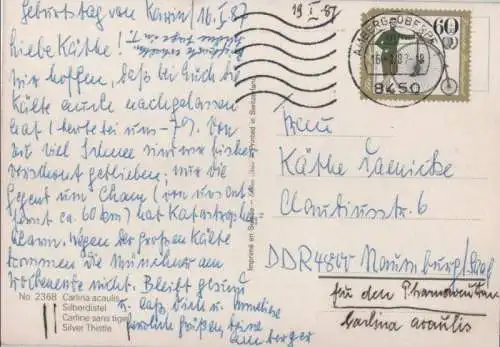 Geburtstag von Karin/16.I.87
19 I. 87
Liebe Käthe!
wir hoffen, daß bei Euch die
Kälte auch nachgelassen
hat (heute bei uns -7°). Von
zu viel Schnee sind wir bisher
verschont geblieben, nur die
Gegend um Cham (von uns ent-
fernt ca. 60 km) hat Katastrophen-
alarm. Wegen der großen Kälte
kommen die Münchner am
Wochenende nicht. Bleibt gesund
u. laßt Dich u. Annelise
herzlich grüßen Deine
Amberger
No. 2368 Carlina acaulis
Silberdistel
Carline sans tige
Silver Thistle
Imprimé en Suisse Printed in Switzerland
60
AMBERG, OBERPF
16.-1.87-18
8450
Frau
Käthe
Claudiusstr. 6
DDR 4800 Naumburg/Saal
für den Pflanzenfan
Carlina acaulis